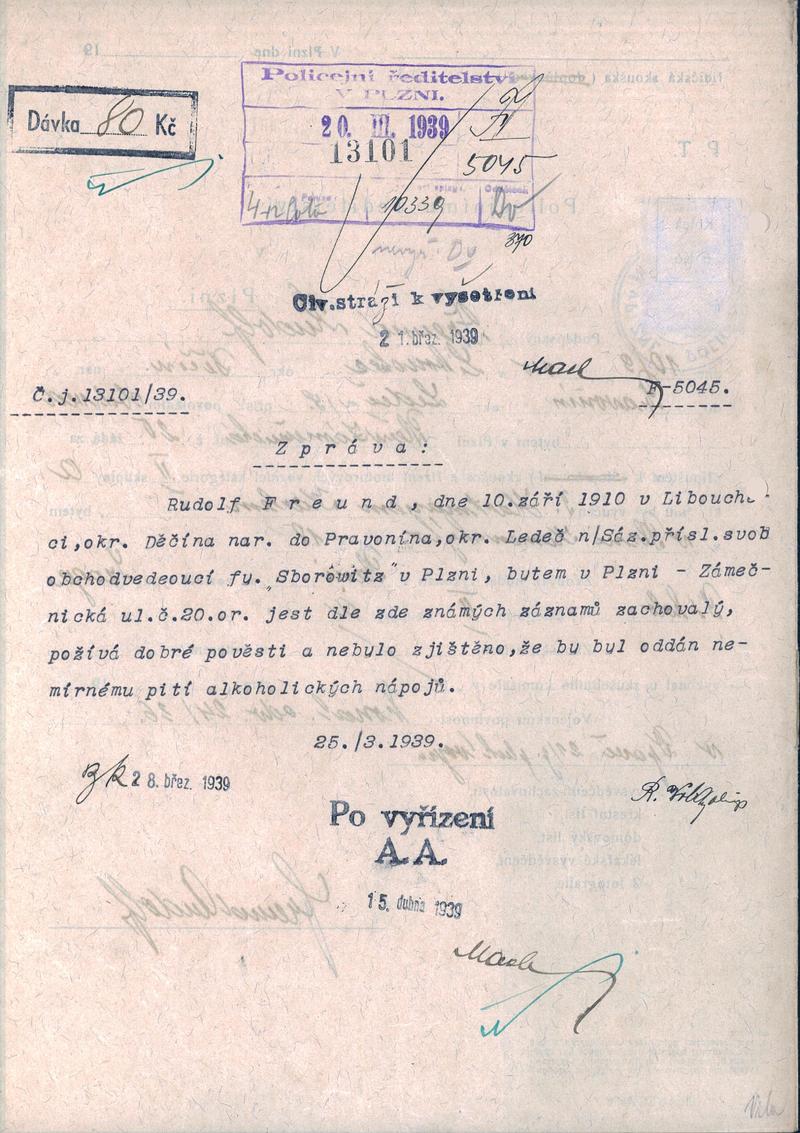 Dávka 80 Kč
Policejní ředitelství
V PLZNI.
20. III. 1939
13101
5045
10339
Dv
370
Civ.stráži k vyšetření
21. břez. 1939
Mach
Č.j.13101/39.
F-5045.
Zpráva:
Rudolf Freund, dne 10.září 1910 v Libouch-
ci,okr. Děčína nar. do Pravonína,okr. Ledeč n/Sáz.přísl.svob
obchodvedeoucí fy. „Sborowitz" v Plzni, bytem v Plzni - Zámeč-
nická ul.č.20.or. jest dle zde známých záznamů zachovalý,
požívá dobré pověsti a nebylo zjištěno,že by byl oddán ne-
mírnému pití alkoholických nápojů.
25./3.1939.
28. břez. 1939
Po vyřízení
A.A.
15. dubna 1939
Mach